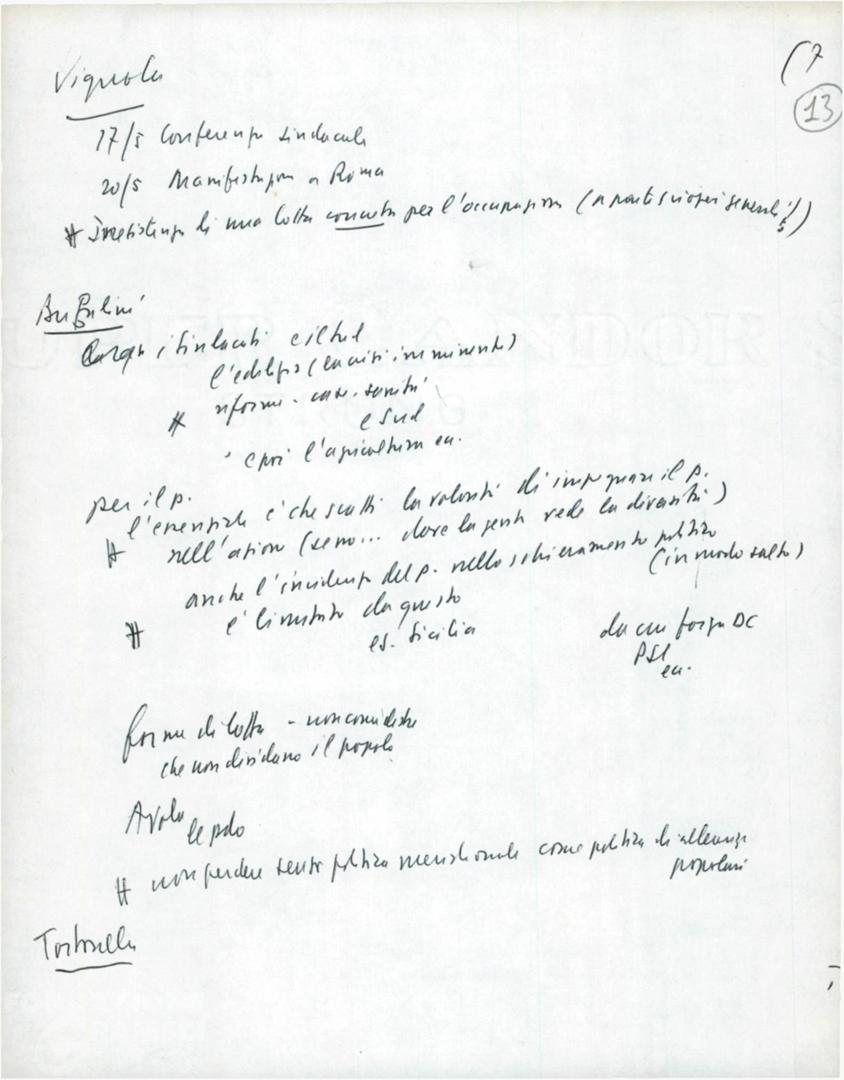 (7
13
Vignola
17/5 Conferenza sindacale
20/5 Manifestazione a Roma
# Inesistenza di una lotta concreta per l'occupazione (a parte scioperi generali)
i sindacati
l'edilizia (la crisi imminente)
riforme - case - sanità
# e Sud
e poi l'agricoltura ecc.
per il p.
l'essenziale è che scatti la volontà di impegnare il p.
# nell'azione (se no... dove la gente vede la diversità)
anche l'incidenza del p. nello schieramento politico
(in modo salto)
# è limitata da questo
es. Sicilia
da cui forza DC
PSI
ecc.
forme di lotta -
che non dividano il popolo
Avola
# non perdere senso politica meridionale come politica di alleanze
popolari
Tortorella